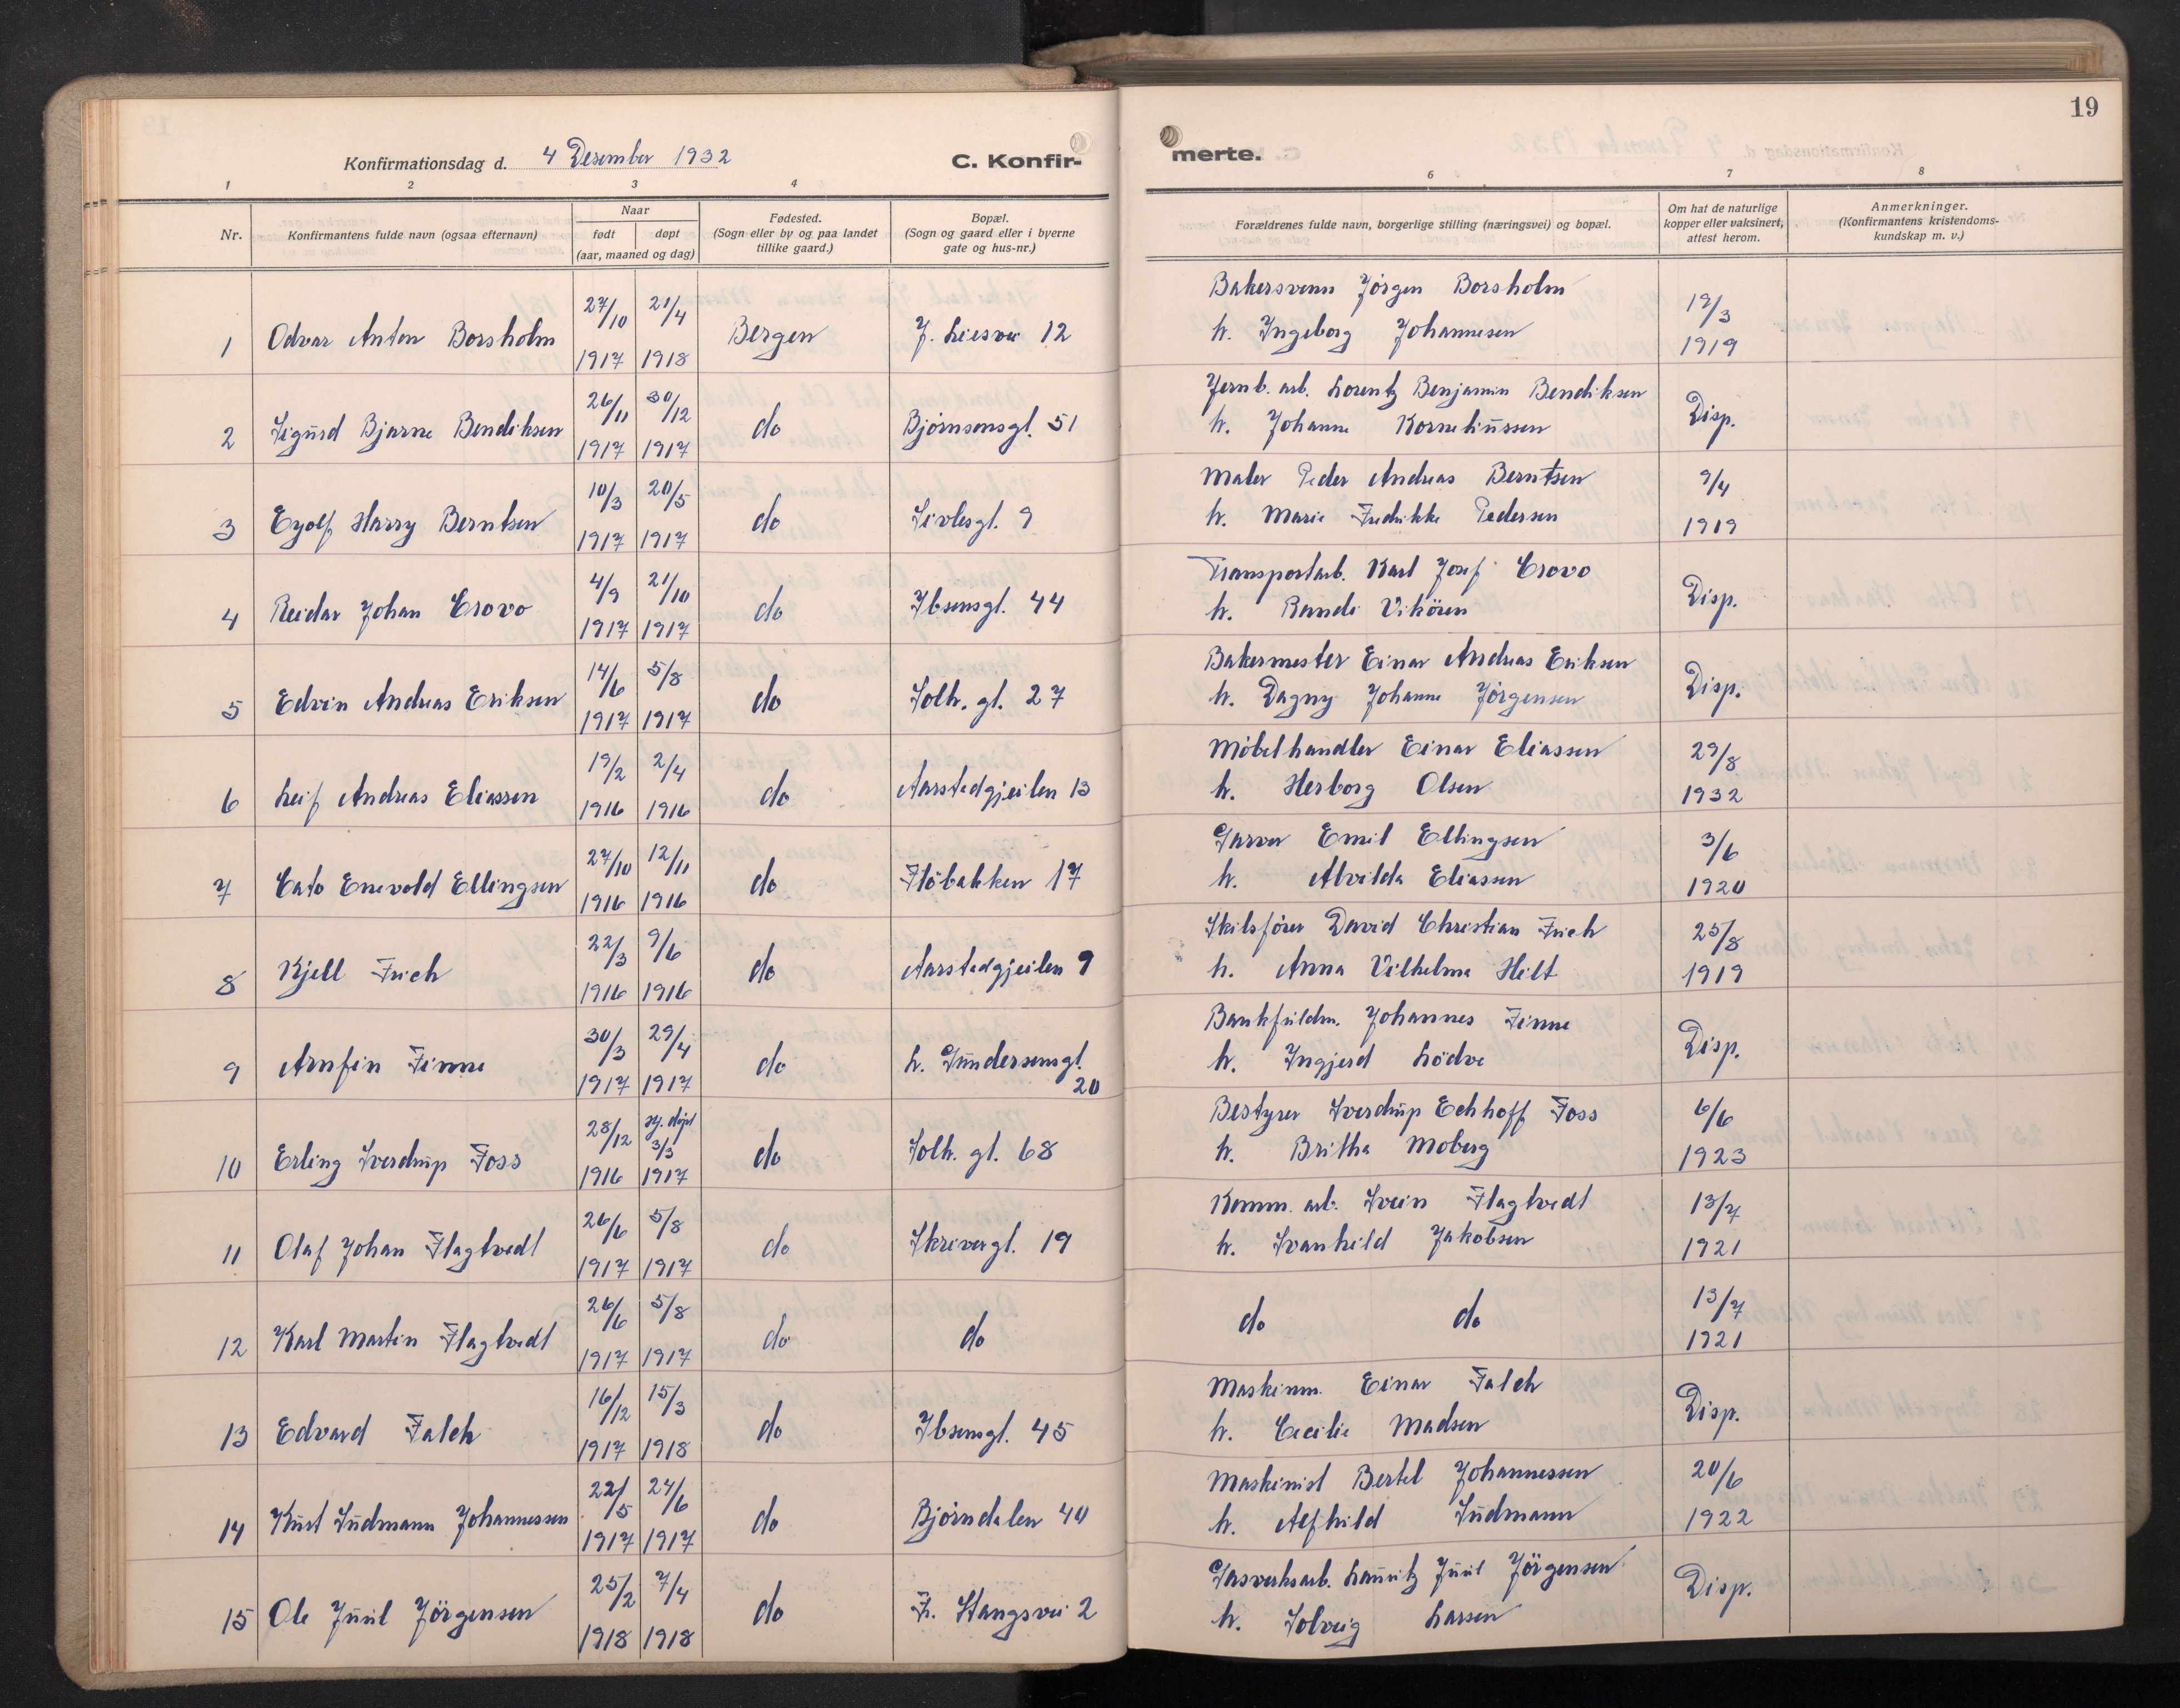 19
Konfirmationsdag d. 4 Desember 1932
C. Konfir-
merte.
1 2 3 4 5
6 7 8
Nr.
Konfirmantens fulde navn (ogsaa efternavn)
Naar
født døpt
(aar, maaned og dag)
Fødested.
(Sogn eller by og paa landet
tillike gaard.)
Bopæl.
(Sogn og gaard eller i byerne
gate og hus-nr.)
Forældrenes fulde navn, borgerlige stilling (næringsvei) og bopæl.
Om hat de naturlige
kopper eller vaksinert,
attest herom.
Anmerkninger.
(Konfirmantens kristendoms-
kundskap m. v.)
27/10 21/4 Bakersvenn Jörgen Borsholm 19/3
1 Odvar Anton Borsholm Bergen J. Liesvei 12 h. Ingeborg Johannesen
1917 1918 1919
26/11 30/12 Jernb. arb. Lorentz Benjamin Bendiksen
2 Sigurd Bjarne Bendiksen do Bjørnsonsgt. 51 h. Johanne Korneliussen Disp.
1917 1917
10/3 20/5 Maler Peder Andreas Berntsen 9/4
3 Eyolf Harry Berntsen do Sivlesgt. 9 h. Marie Fredrikke Pedersen
1917 1917 1919
4/9 21/10 Transportarb. Karl Josef Crovo
4 Reidar Johan Crovo do Ibsensgt. 44 h. Randi Vikören Disp.
1917 1917
14/6 5/8 Bakermester Einar Andreas Eriksen
5 Edvin Andreas Eriksen do Solh. gt. 27 h. Dagny Johanne Jörgensen Disp.
1917 1917
19/2 2/4 Möbelhandler Einar Eliassen 29/8
6 Leif Andreas Eliassen do Aarstadgjeilen 13 h. Herborg Olsen
1916 1916 1932
27/10 12/11 Garver Emil Ellingsen 3/6
7 Cato Enevold Ellingsen do Flöbakken 17 h. Alvilda Eliassen
1916 1916 1920
22/3 9/6 Skibsförer David Christian Frich 25/8
8 Kjell Frich do Aarstadgjeilen 9 h. Anna Vilhelma Hilt
1916 1916 1919
30/3 29/4 Bankfuldm. Johannes Finne
9 Arnfin Finne do L. Gundersensgt. h. Ingjerd Lödve Disp.
1917 1917 20
28/12 hj. døpt 3/3 Bestyrer Sverdrup Echhoff Foss 6/6
10 Erling Sverdrup Foss do Solh. gt. 68 h. Britha Moberg
1916 1917 1923
26/6 5/8 Komm. arb. Svein Flagtvedt 13/7
11 Olaf Johan Flagtvedt do Skrivergt. 19 h. Svanhild Jakobsen
1917 1917 1921
26/6 5/8 13/7
12 Karl Martin Flagtvedt do do do do
1917 1917 1921
16/12 15/3 Maskinm. Einar Falch
13 Edvard Falch do Ibsensgt. 45 h. Cecilie Madsen Disp.
1917 1918
22/5 24/6 Maskinist Bertel Johannessen 20/6
14 Knut Sudmann Johannessen do Bjørndalen 40 h. Alfhild Sudmann
1917 1917 1922
25/2 7/4 Gasverksarb. Lauritz Juul Jörgensen
15 Ole Juul Jörgensen do F. Stangsvei 2 h. Solveig Larsen Disp.
1918 1918